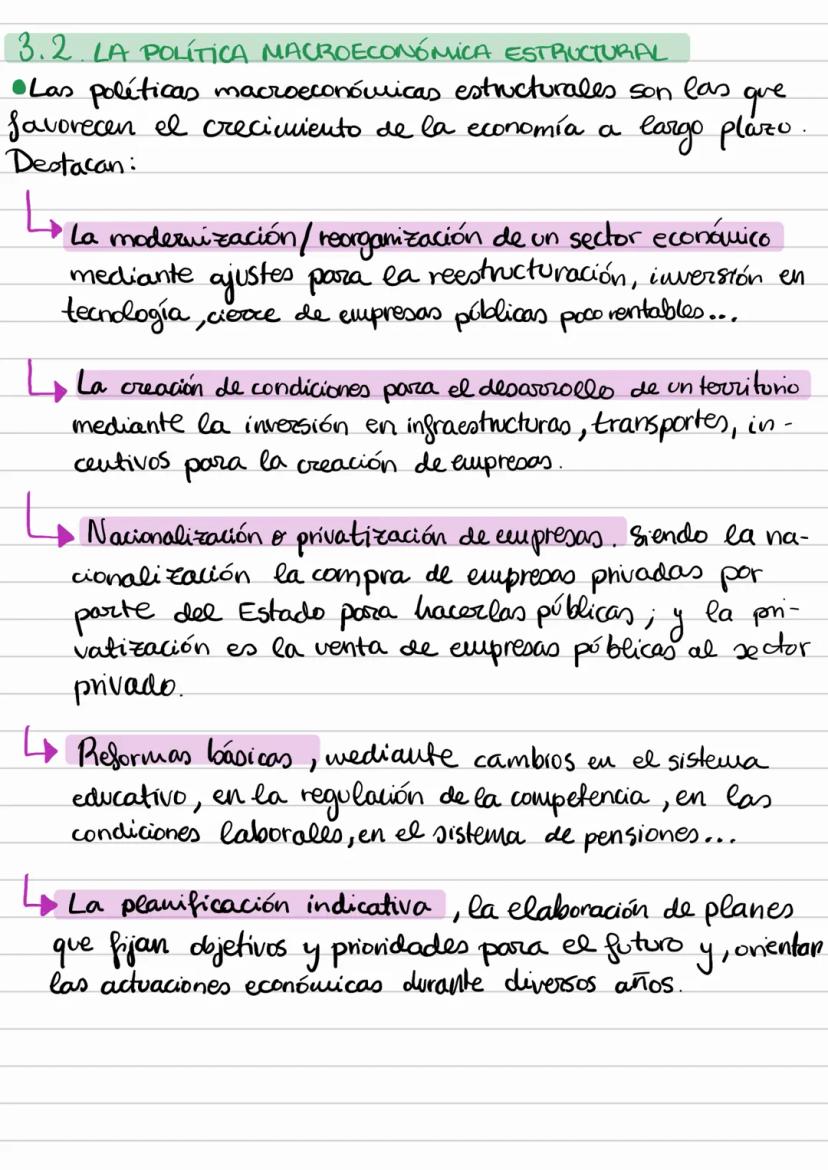 3.2. LA POLÍTICA MACROECONÓMICA ESTRUCTURAL
•Las políticas macroeconómicas estructurales son las que
favorecen el crecimiento de la economía a largo plazo.
Destacan:
La modernización/reorganización de un sector económico
mediante ajustes para la reestructuración, inversión en
tecnología, cierre de empresas públicas poco rentables...
La creación de condiciones para el desarrollo de un territorio
mediante la inversión en infraestructuras, transportes, in-
centivos para la creación de empresas.
Nacionalización o privatización de empresas. Siendo la na-
cionalización la compra de empresas privadas por
parte del Estado para hacerlas públicas; y la pri-
vatización es la venta de empresas públicas al sector
privado.
Reformas básicas, mediante cambios en el sistema
educativo, en la regulación de la competencia, en las
condiciones laborales, en el sistema de pensiones...
La planificación indicativa, la elaboración de planes
que fijan objetivos y prioridades para el futuro y, orientan
las actuaciones económicas durante diversos años.